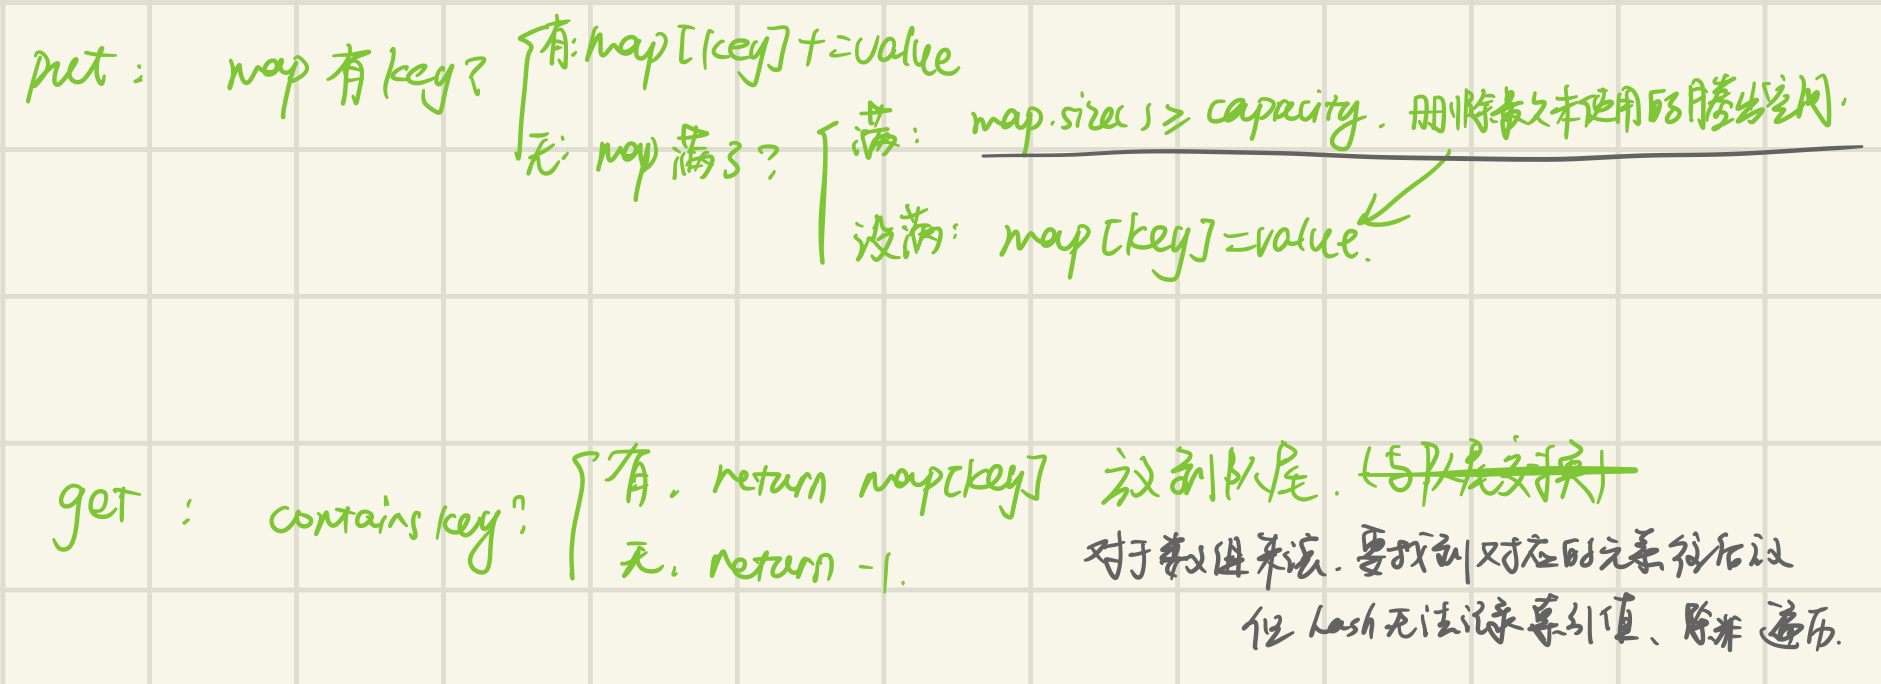 put: map 有 key?
有: map[key] += value
无: map 满了?
满: map.size() ≥ capacity. 删除最久未使用的腾出空间.
没满: map[key] = value.
get: contains key?
有. return map[key] 放到队尾. (与队尾交换)
无. return -1.
对于数组来说. 要找到对应的元素往后放
但 hash 无法记录索引值、除非遍历.